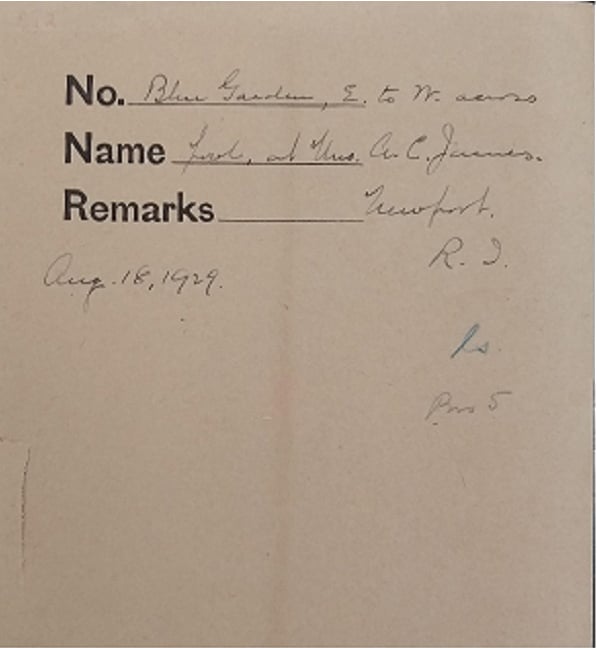 No. Blue Garden, E. to W. across
Name pool, at Mrs. A. C. James.
Remarks Newport.
R. I.
Aug. 18, 1929.